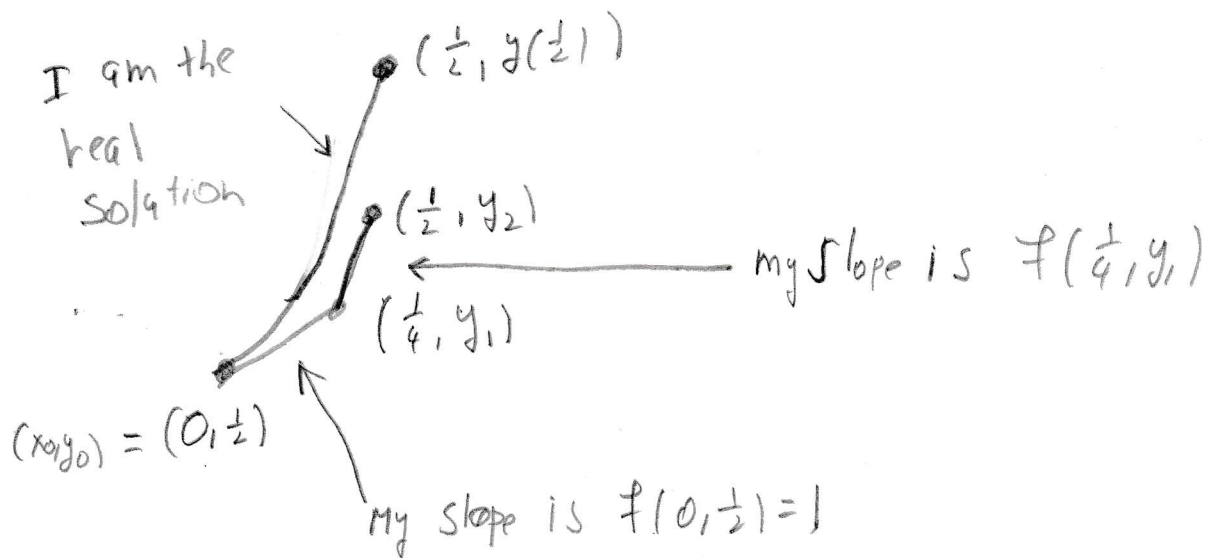 I am the
real
solution
(½, y(½))
(½, y₂)
my slope is f(¼, y₁)
(¼, y₁)
(x₀,y₀) = (0, ½)
My slope is f(0, ½) = 1